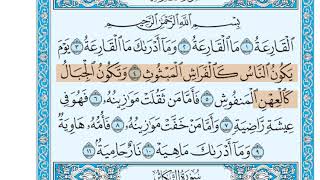 بِسْمِ ٱللَّهِ ٱلرَّحْمَٰنِ ٱلرَّحِيمِ
ٱلْقَارِعَةُ ١ مَا ٱلْقَارِعَةُ ٢ وَمَآ أَدْرَىٰكَ مَا ٱلْقَارِعَةُ ٣ يَوْمَ
يَكُونُ ٱلنَّاسُ كَٱلْفَرَاشِ ٱلْمَبْثُوثِ ٤ وَتَكُونُ ٱلْجِبَالُ
كَٱلْعِهْنِ ٱلْمَنفُوشِ ٥ فَأَمَّا مَن ثَقُلَتْ مَوَٰزِينُهُۥ ٦ فَهُوَ فِى
عِيشَةٍ رَّاضِيَةٍ ٧ وَأَمَّا مَنْ خَفَّتْ مَوَٰزِينُهُۥ ٨ فَأُمُّهُۥ هَاوِيَةٌ
٩ وَمَآ أَدْرَىٰكَ مَا هِيَهْ ١٠ نَارٌ حَامِيَةٌۢ ١١
سُورَةُ التَّكَاثُرِ